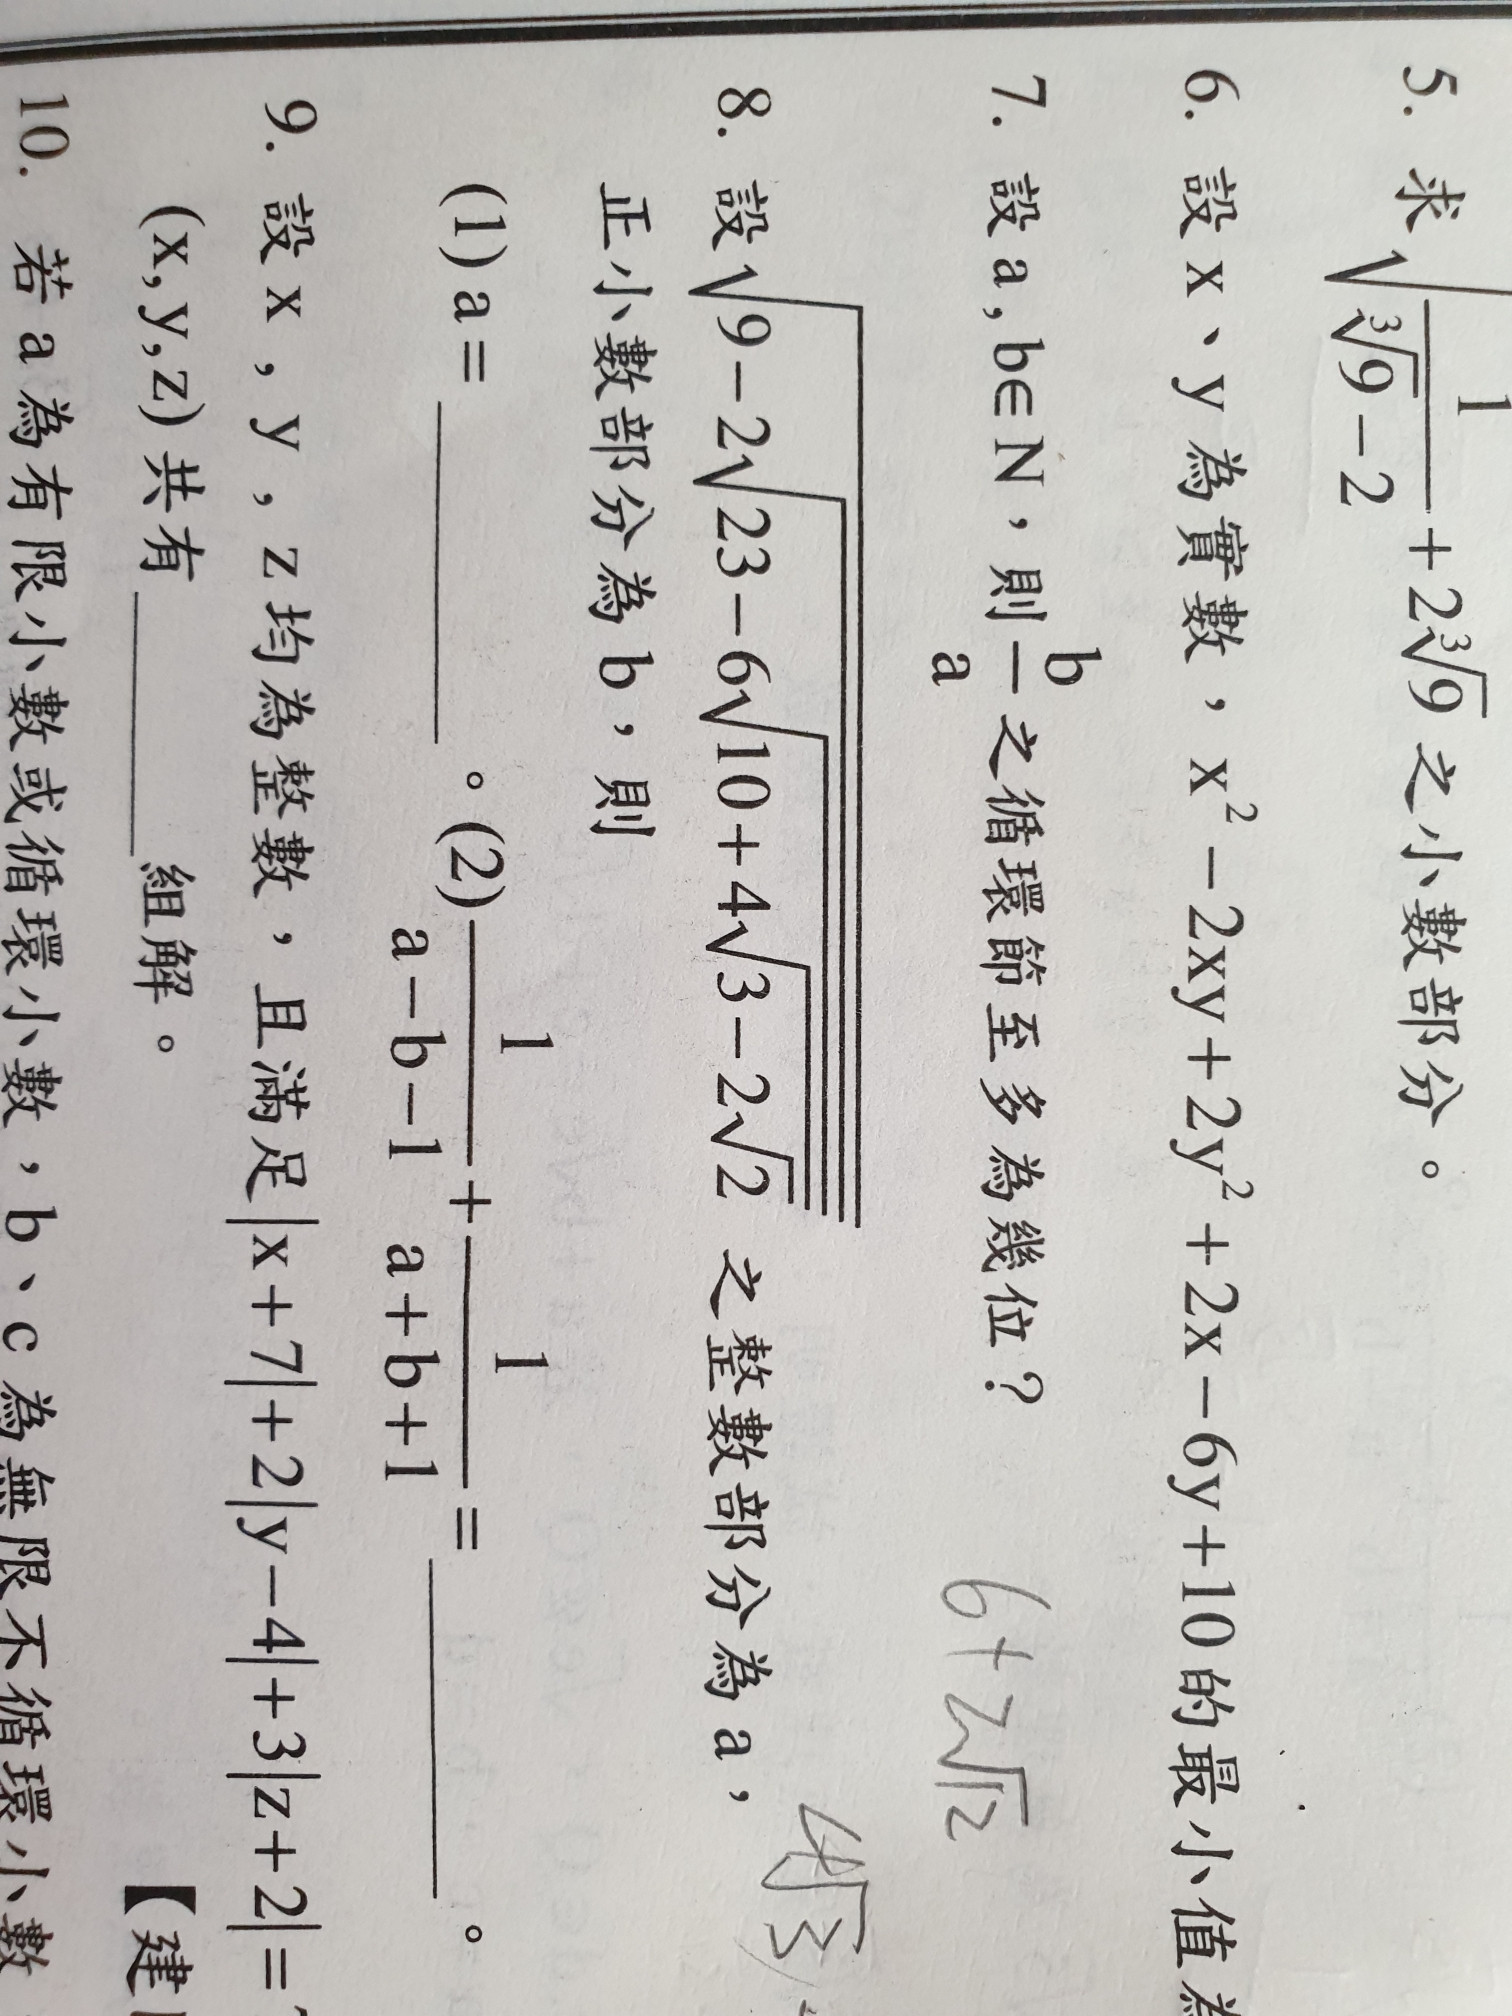 5. 求√(1/(∛9−2)+2∛9) 之小數部分。
6. 設 x、y 為實數，x²−2xy+2y²+2x−6y+10 的最小值為
7. 設 a,b∈N，則 b/a 之循環節至多為幾位？
6+2√2
8. 設√(9−2√(23−6√(10+4√(3−2√2)))) 之整數部分為 a，
4√3
正小數部分為 b，則
(1) a = ______。(2) 1/(a−b−1) + 1/(a+b+1) = ______。
9. 設 x，y，z 均為整數，且滿足|x+7|+2|y−4|+3|z+2|=
(x,y,z) 共有______組解。 【建
10. 若 a 為有限小數或循環小數，b、c 為無限不循環小數